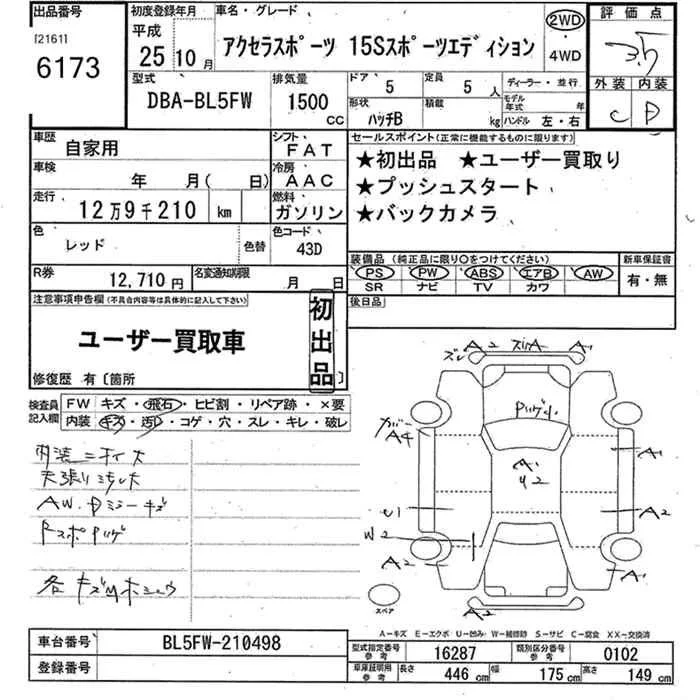 出品番号 初度登録年月 車名・グレード 評価点
[2161] 平成 2WD
6173 25 10月 アクセラスポーツ 15Sスポーツエディション ・ 3.5
4WD
型式 排気量 ドア 5 定員 5人 ディーラー・並行 外装 内装
DBA-BL5FW 1500cc 形状 ハッチB 積載 kg モデル年式 年 C D
ハンドル 左・右
車歴 自家用 シフト FAT セールスポイント(正常に機能するものに限ります)
車検 年 月( 日) 冷房 AAC ★初出品 ★ユーザー買取り
走行 12万9千210 km 燃料 ガソリン ★プッシュスタート
★バックカメラ
色 レッド 色替 色コード 43D
装備品(純正品に限り○をつけてください) 新車保証書
R券 12,710円 名変通知期限 月 日 PS PW ABS エアB AW 有・無
SR ナビ TV カワ
注意事項申告欄(不具合内容等は具体的に記入して下さい) 初出品 後日品
ユーザー買取車
修復歴 有〔箇所 〕
検査員記入欄 FW キズ・飛石・ヒビ割・リペア跡・×要
内装 キズ・汚レ・コゲ・穴・スレ・キレ・破レ
内装ニオイ大
天張りシミ大
AW.Dミラーキズ
Fスポハゲ
各キズUホシュウ
A2 スリA A1
ズレ
ハゲU
カバー
A4
A1
U2
A1
U1 A2
W2
A2 A1
スペア
A2
A−キズ E−エクボ U−凹み W−補修跡 S−サビ C−腐食 XX−交換済
車台番号 BL5FW-210498 型式指定番号 参考 16287 類別区分番号 参考 0102
登録番号 車庫証明用 参考 長さ 446cm 幅 175cm 高さ 149cm